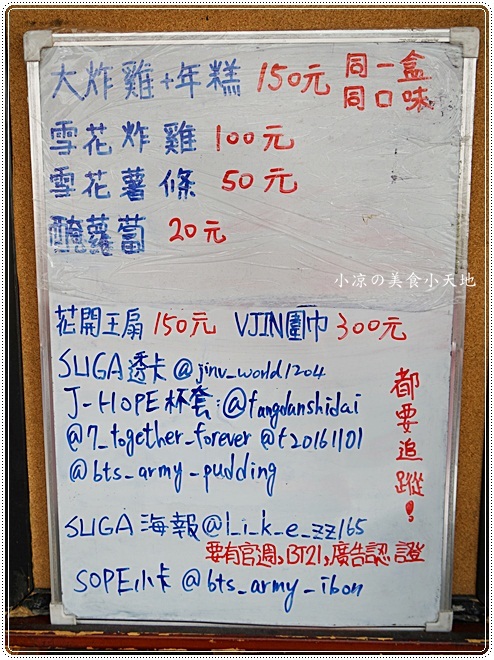 大炸雞+年糕 150元 同一盒
同口味
雪花炸雞 100元
雪花薯條 50元
醃蘿蔔 20元
小凉の美食小天地
花開王扇 150元 VJIN圍巾 300元
SUGA透卡 @jinv_world1204
J-HOPE杯套:@fangdanshidai
@7_together_forever @t20161101
@bts_army_pudding
都要追蹤!
SUGA 海報 @Li_k_e_zz165
要有官週,BT21,廣告認證
SOPE小卡 @bts_army_ibon